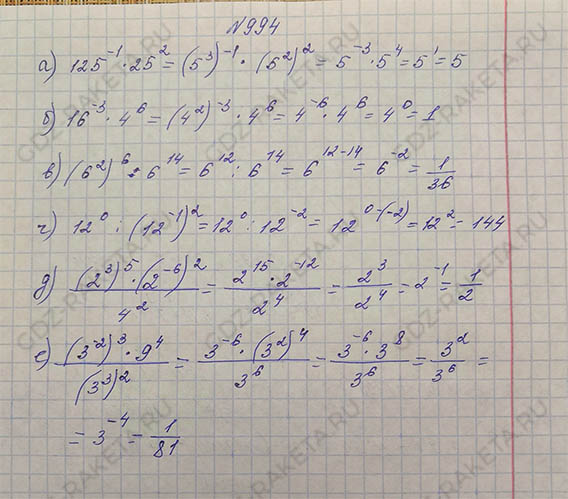 №994
а) 125⁻¹·25² = (5³)⁻¹·(5²)² = 5⁻³·5⁴ = 5¹ = 5
б) 16⁻³·4⁶ = (4²)⁻³·4⁶ = 4⁻⁶·4⁶ = 4⁰ = 1
в) (6²)⁶ : 6¹⁴ = 6¹² : 6¹⁴ = 6¹²⁻¹⁴ = 6⁻² = 1/36
г) 12⁰ : (12⁻¹)² = 12⁰ : 12⁻² = 12⁰⁻⁽⁻²⁾ = 12² = 144
д) (2³)⁵·(2⁻⁶)²/4² = 2¹⁵·2⁻¹²/2⁴ = 2³/2⁴ = 2⁻¹ = 1/2
е) (3⁻²)³·9⁴/(3³)² = 3⁻⁶·(3²)⁴/3⁶ = 3⁻⁶·3⁸/3⁶ = 3²/3⁶ =
= 3⁻⁴ = 1/81
GDZ-RAKETA.RU